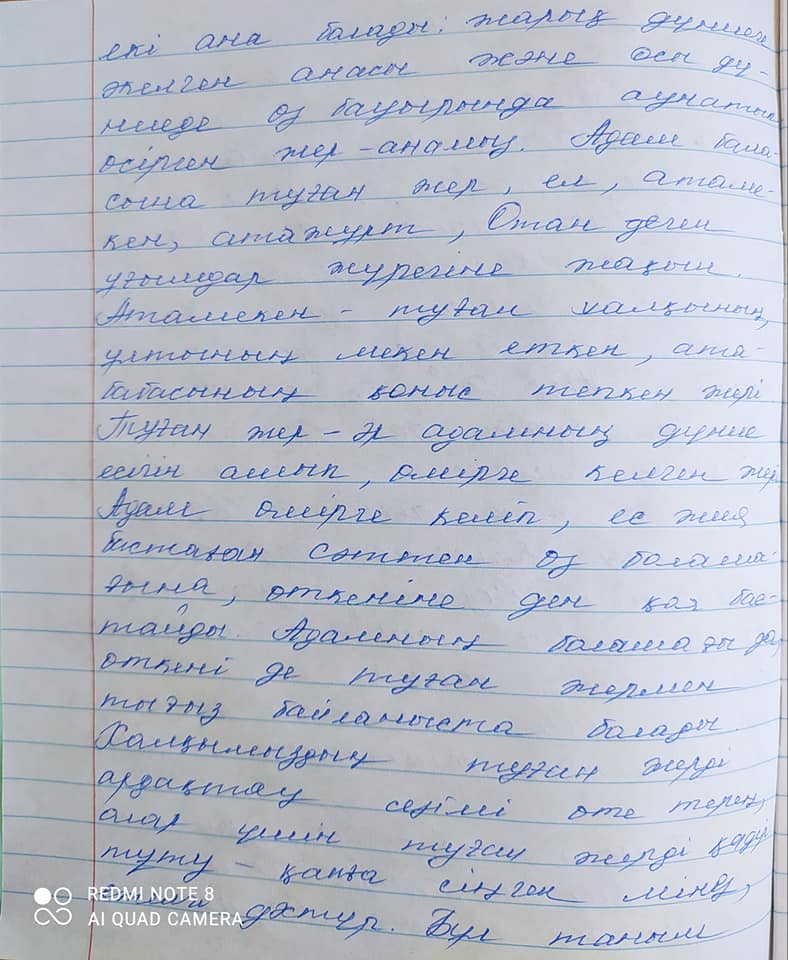 екі ана болады: жарық дүниеге
әкелген анасы және осы дү-
ниеде өз бауырында аунатып
өсірген жер-анамыз. Адам бала-
сына туған жер, ел, атаме-
кен, атажұрт, Отан деген
ұғымдар жүрегіне жақын.
Атамекен - туған халқының,
ұлтының мекен еткен, ата-
бабасының қоныс тепкен жері.
Туған жер - әр адамның дүние
есігін ашып, өмірге келген жері
Адам өмірге келіп, ес жия
бастаған сәттен өз болаша-
ғына, өткеніне ден қоя бас-
тайды. Адамның болашағы да,
өткені де туған жермен
тығыз байланыста болады.
Халқымыздың туған жерді
ардақтау сезімі өте терең,
олар үшін туған жерді қадір
тұту - қанға сіңген мінез,
дәстүр. Бұл таным
REDMI NOTE 8
AI QUAD CAMERA